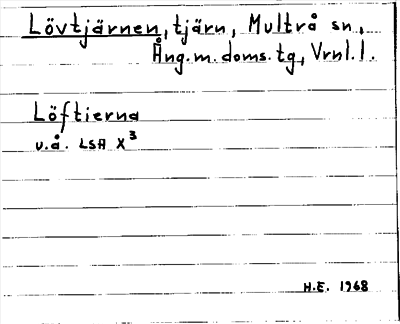 Lövtjärnen, tjärn, Multrå sn,
Ång.m.doms.tg, Vrnl.l.
Löftierna
u.å. LSA X³
H.E. 1968